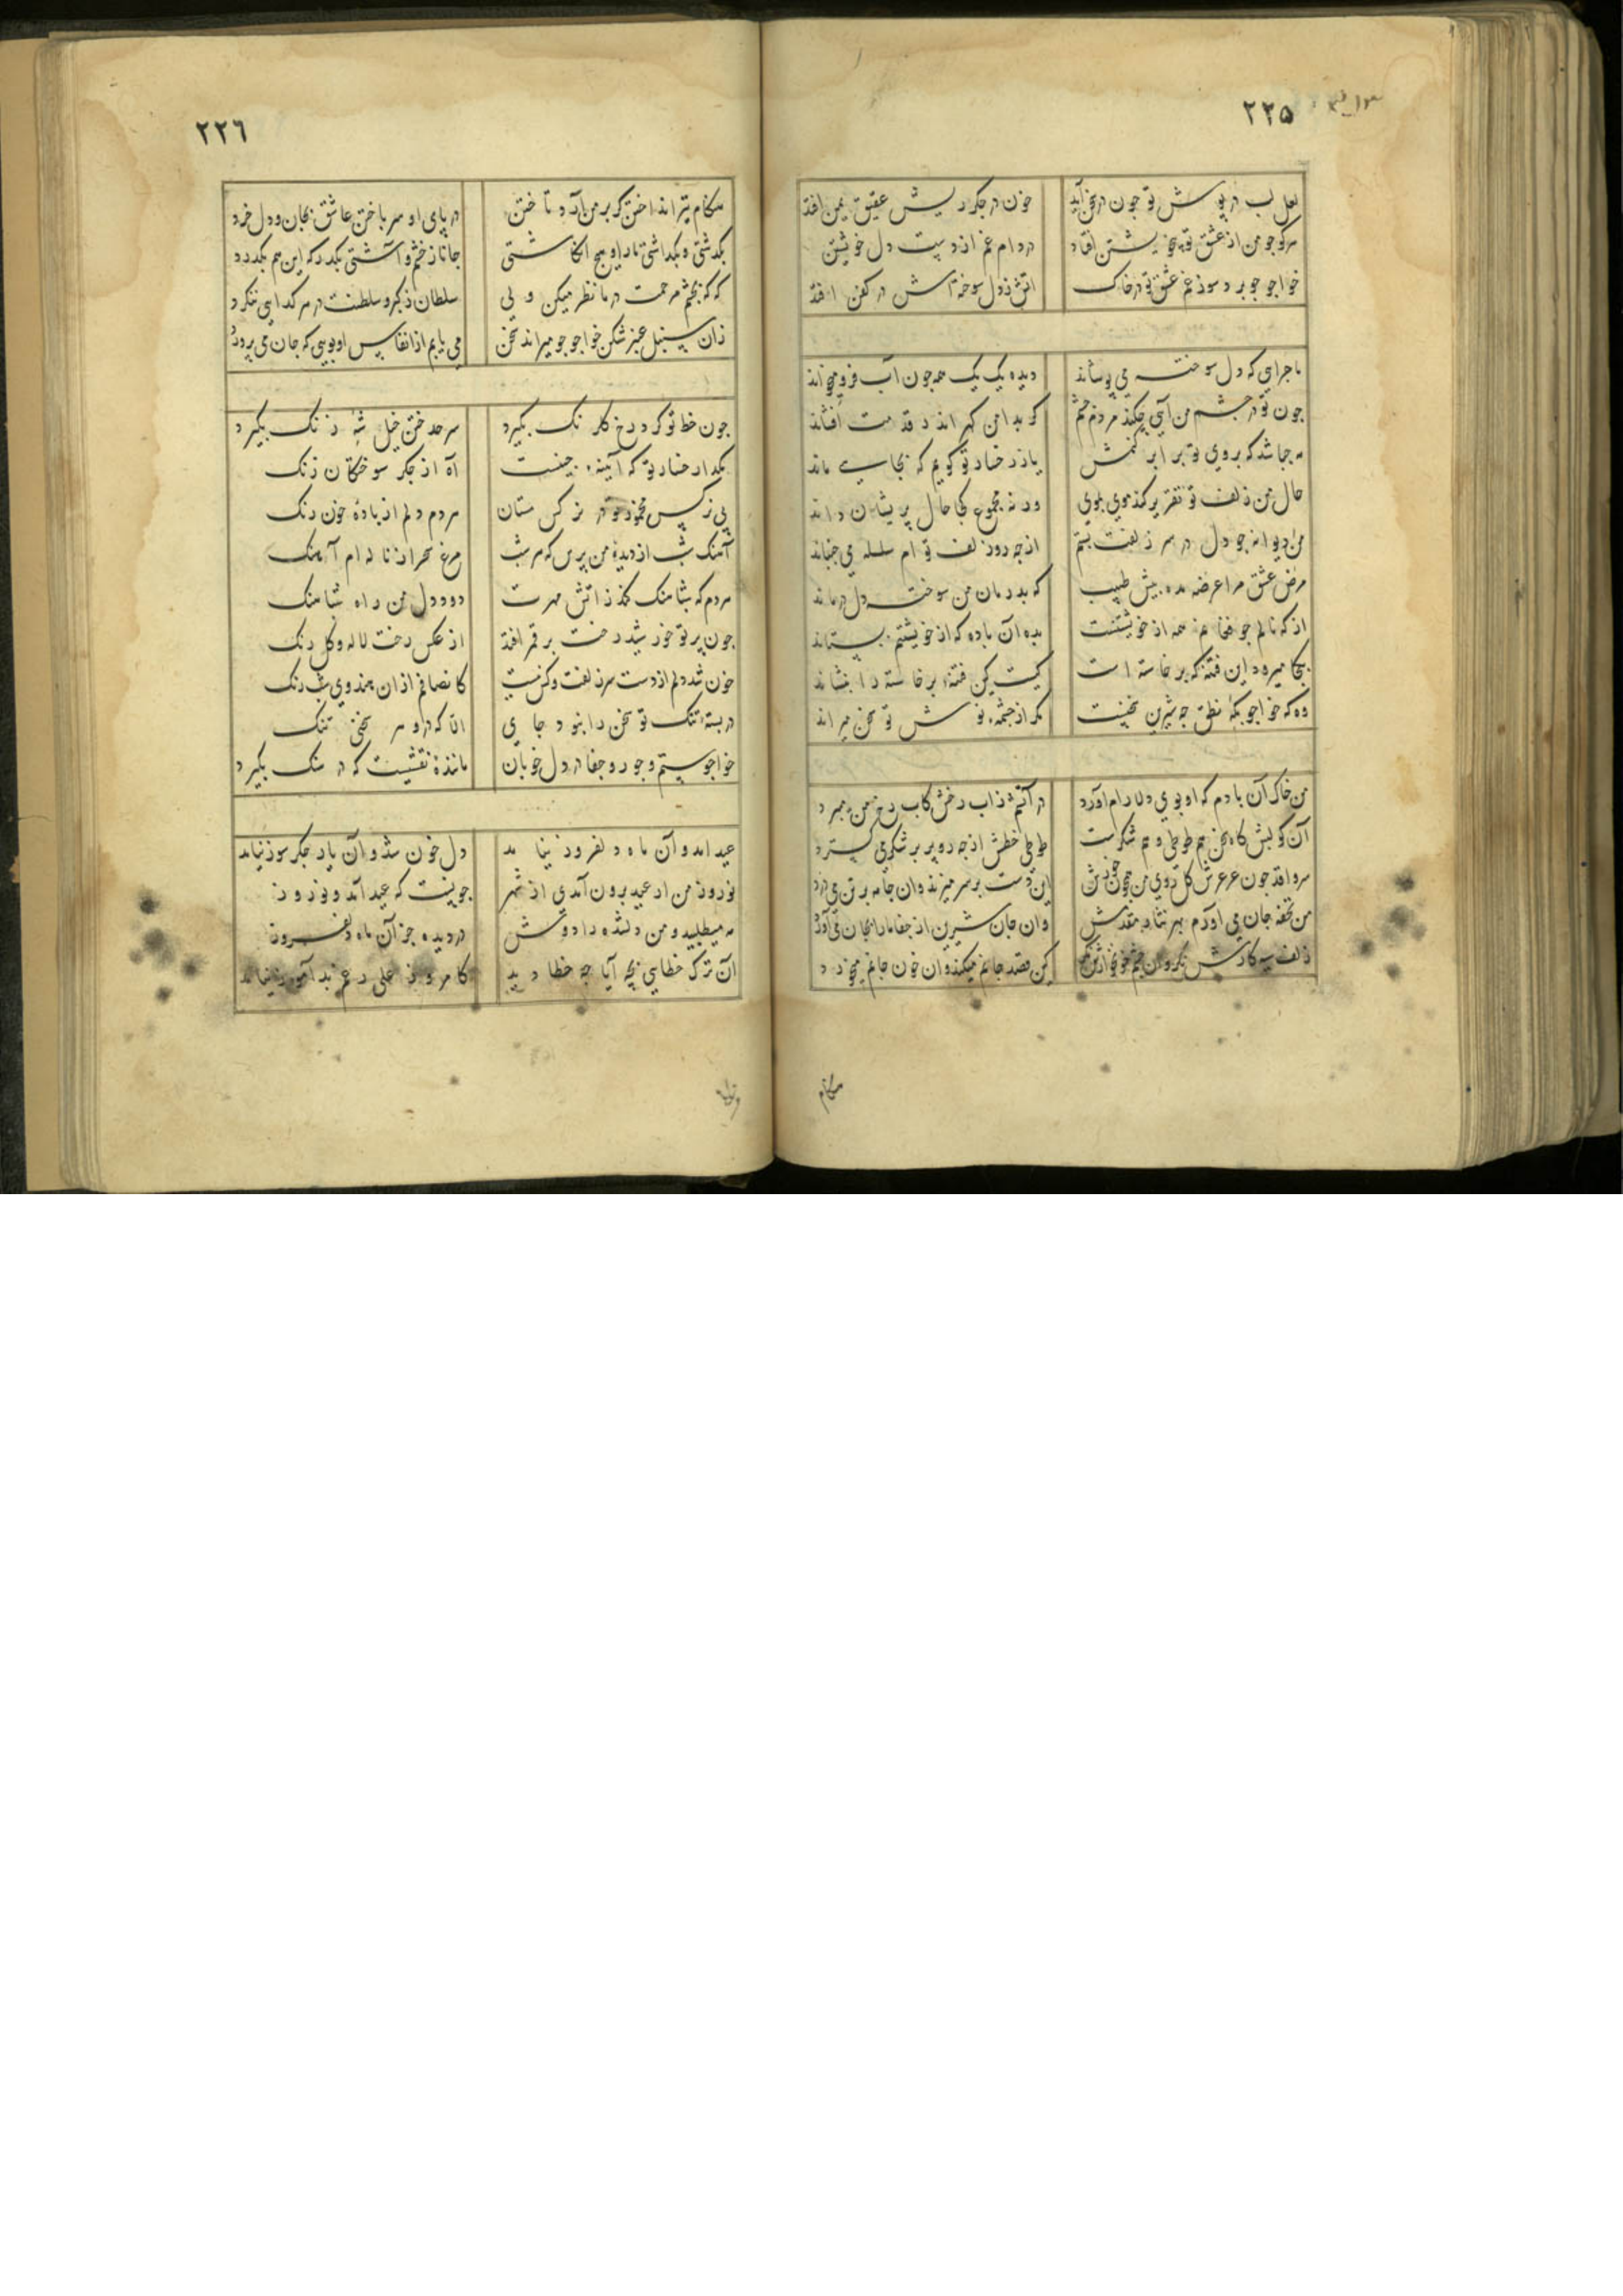 ٢٢٥
لعل لب در پوش تو چون در سخن آید خون در جکر ریش عقیق یمن افتد
هرکو چو من از عشق تو بی خویشتن افتاد در دام غم از دست دل خویشتن
خواجو چو برد سوز غم عشق تو در خاک اتش ز دل سوخته اش در کفن افتد
ماجرایی که دل سوخته می پوشاند دیده یک یک همه جون آب فرو میخواند
جون تو در چشم من آیی چکند مردم چشم که بدامن کهر اندر قدمت افشاند
مه جا شد که بروی تو برابر کنمش یا ز رخسار تو کویم که بجایی ماند
حال من زلف تو تقریر کند موی بموی ورنه مجموع کجا حال پریشان داند
من دیوانه جو دل در سر زلفت بستم از جه رو زلف تو ام سلسله می جنباند
مرض عشق مرا عرضه مده پیش طبیب که بدرمان من سوخته دل درماند
از که نالم جو فغانم همه از خویشتنست بده آن باده که از خویشتنم بستاند
بکجا میرود این فتنه که برخاسته است کیست کین فتنه برخاسته را بنشاند
وه که خواجو بکه نطق جه شیرین سخنست مکر از جشمه نوش تو سخن میراند
من خاک آن بادم که او بوی دلارام آورد در آتشم ز آب رخش کاب رخ من میبرد
آن کو لبش کاه سخن هم طوطی و هم شکرست طوطی خطش از جه رو پر بر شکر می کسترد
سرو اقد جون عرعرش کل روی من این دست بر سر میزند وان جامه بر تن می درد
من تحفه جان می آورم بهر نثار مقدمش وان جان شیرین از جفا ما را بجان می آورد
زلف سیه کارش نکر وان چشم خونخوارش نکر کین قصد جانم میکند وان خون جانم میخورد
هنکام
٢٢٦
هنکام تیر انداختن کر بر من آرد تاختن در پای او سر باختن عاشق بجان و دل خرد
بکذشتی و بکذاشتی ما را و هیج انکاشتی جانا ز خشم و آشتی بکذر که این هم بکذرد
که که بچشم مرحمت در ما نظر میکن ولی سلطان ز کبر و سلطنت در هر کدایی ننکرد
زان سنبل عنبر شکن خواجو جو میراند سخن می یابم از انفاس او بویی که جان می پرورد
جون خط تو کرد رخ کلرنک بکیرد سر حد ختن خیل شه زنک بکیرد
مکذار رخسار تو که آیینه چینست آه از جکر سوختکان زنک
بی نرکس مخمور تو در نرکس مستان مردم دلم از باده خون رنک
آهنک شب از دیده من پرس که هر شب مرغ سحر از ناله ام آهنک
مردم که شباهنک کند ز اتش مهرت دود دل من راه شباهنک
چون پرتو خورشید رخت بر قمر افتد از عکس رخت لاله و کل رنک
خون شد دلم از دست سر زلفت و کس نیست کانصافم از ان هندوی شب رنک
در بسته تنک تو سخن را نبود جای الا که در و هر سخنی تنک
خواجو ستم و جور و جفا در دل خوبان مانند نقشیست که در سنک بکیرد
عید امد و آن ماه دلفروز نیامد دل خون شد و آن یار جکر سوز نیامد
نوروز من ار عید برون آمدی از شهر جونست که عید آمد و نوروز
مه میطلبید و من دلشده را دوش در دیده جز آن ماه دلفروز
آن ترک خطایی بچه آیا چه خطا دید کامروز علی رغم بد آموز نیامد